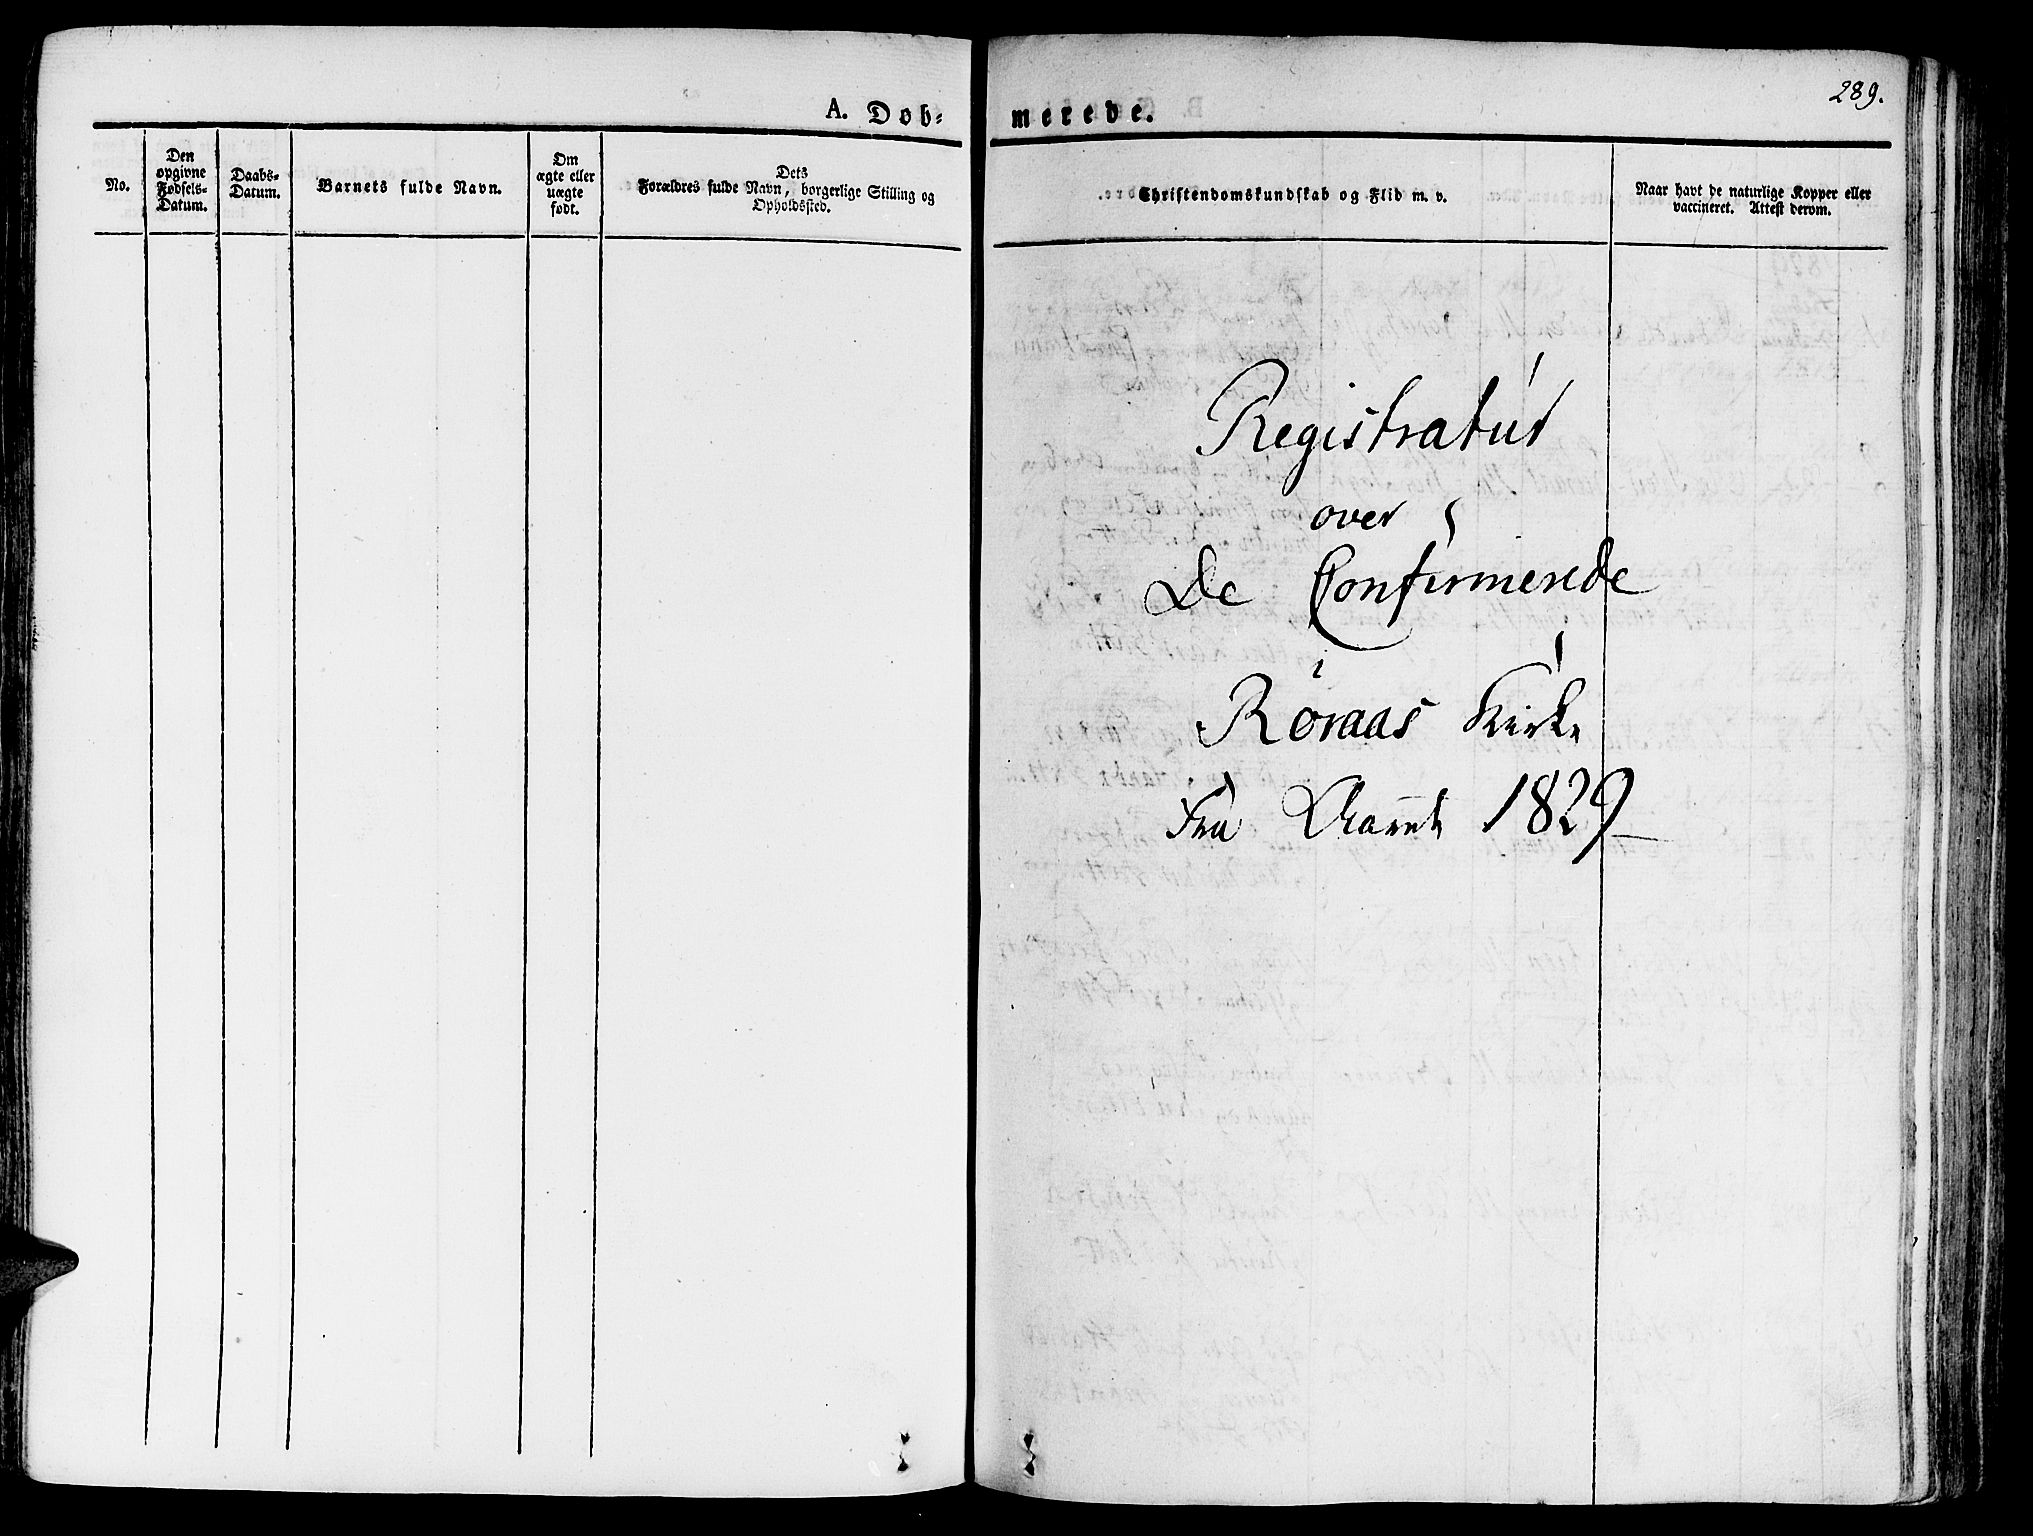 A. Døb-
No.
Den
opgivne
Fødsels-
Datum.
Daabs-
Datum.
Barnets fulde Navn.
Om
ægte eller
uægte
født.
Dets
Forældres fulde Navn, borgerlige Stilling og
Opholdssted.
289.
merede.
Christendomskundskab og Flid m. v.
Naar havt de naturlige Kopper eller
vaccineret. Attest derom.
Registratur
over
De Confirmerede
i
Røraas Kirke
Fra Aaret 1829